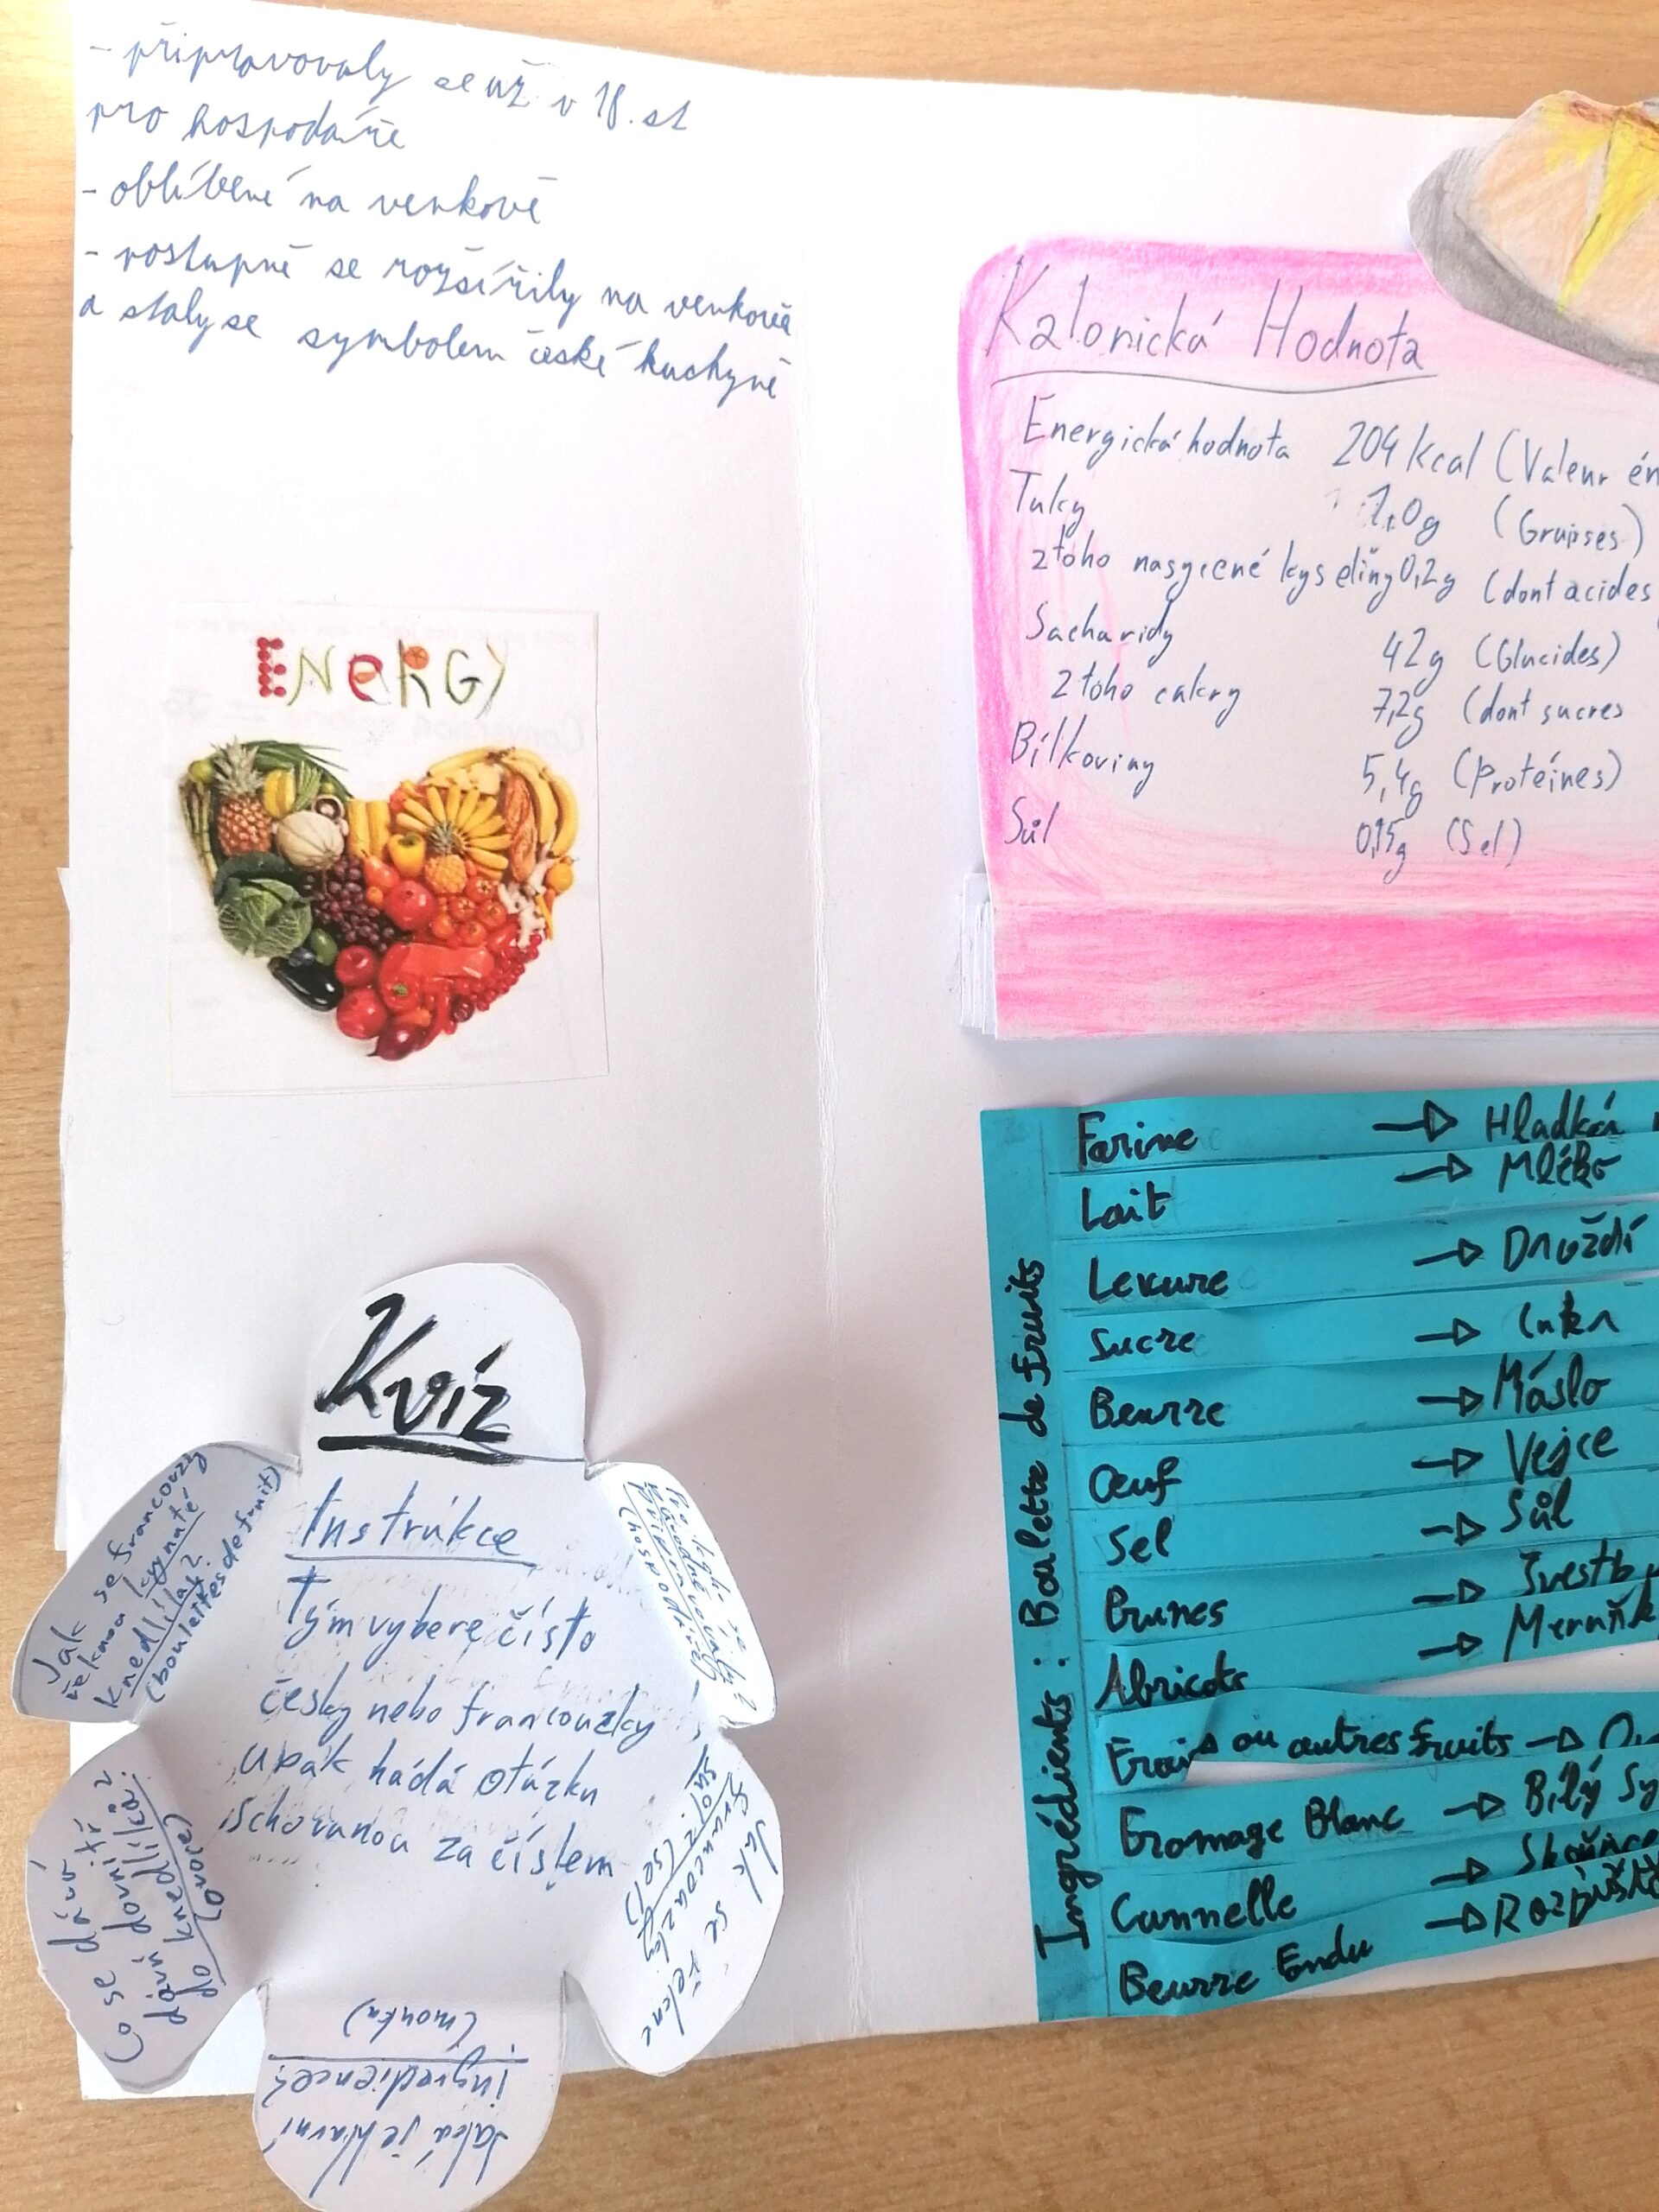 - připravovaly se už v 18. st
pro hospodáře
- oblíbené na venkově
- postupně se rozšířily na venkově
a staly se symbolem české kuchyně
ENERGY
Kalorická Hodnota
Energická hodnota 204 kcal (Valeur én
Tuky 1,0g (Graisses)
z toho nasycené kyseliny 0,2g (dont acides
Sacharidy 42g (Glucides)
z toho cukry 7,2g (dont sucres
Bílkoviny 5,4g (Protéines)
Sůl 0,15g (Sel)
Ingrédients : Boulette de fruits
Farine → Hladká
Lait → Mléko
Levure → Droždí
Sucre → Cukr
Beurre → Máslo
Œuf → Vejce
Sel → Sůl
Prunes → Švestk
Abricots → Meruňk
ou autres fruits →
Fromage Blanc → Bílý Sy
Cannelle → Skořice
Beurre Fondu → Rozpuště
Kvíz
Instrukce
Tým vybere číslo
česky nebo francouzky
a pak hádá otázku
schovanou za číslem
Jak se francouzy
řeknou kynuté
knedlíky?
(boulettes de fruit)
Pro koho se
původně
(hospodáře)
Jak se řekne
francouzky
sůl? (sel)
Jaká je hlavní
ingredience?
(mouka)
Co se dává
dovnitř
do knedlíků?
(ovoce)